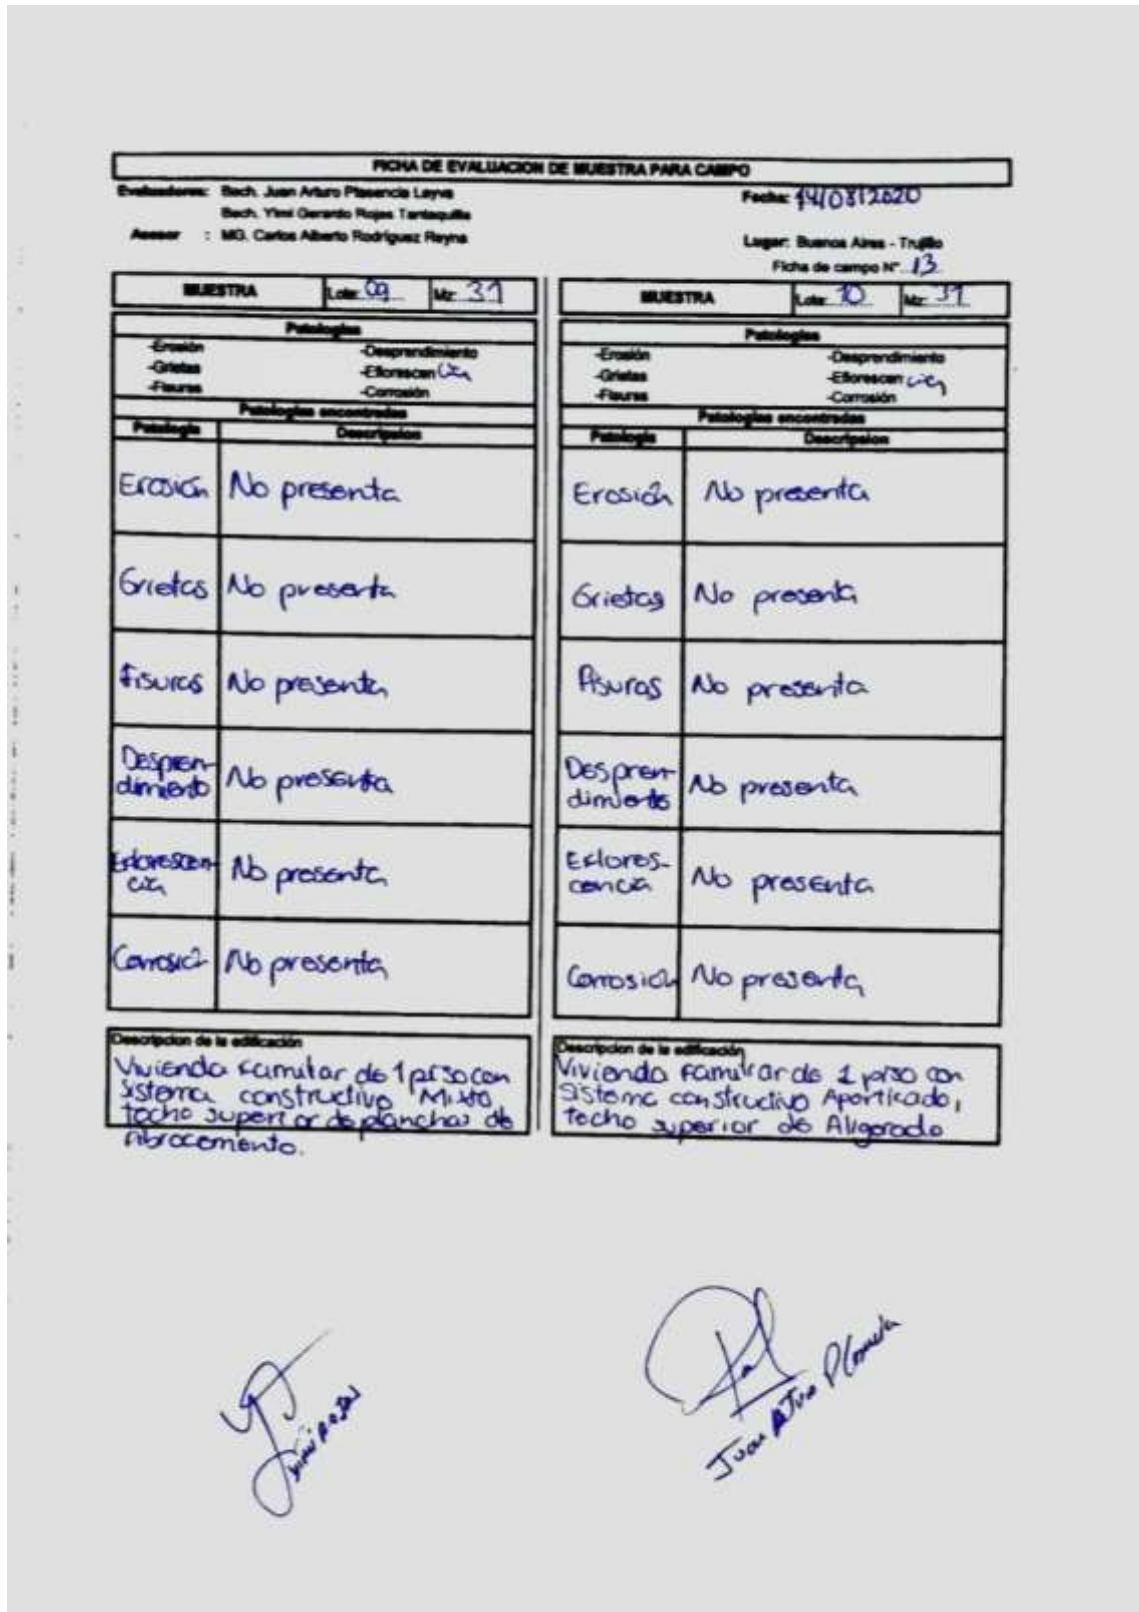 FICHA DE EVALUACION DE MUESTRA PARA CAMPO
Evaluadores: Bach. Juan Arturo Plasencia Leyva
Fecha: 14/08/2020
Bach. Yimi Gerardo Rojas Tantaquilla
Asesor : MG. Carlos Alberto Rodríguez Reyna
Lugar: Buenos Aires - Trujillo
Ficha de campo N° 13
MUESTRA Lote: 09 Mz: 31
Patologías
-Erosión -Desprendimiento
-Grietas -Eflorescencia
-Fisuras -Corrosión
Patologías encontradas
Patología Descripsion
Erosión No presenta
Grietas No presenta
Fisuras No presenta
Despren-
dimiento No presenta
Eflorescen-
cia No presenta
Corrosión No presenta
Descripcion de la edificación
Vivienda familiar de 1 piso con
sistema constructivo Mixto,
techo superior de planchas de
fibrocemento.
MUESTRA Lote: 10 Mz: 31
Patologías
-Erosión -Desprendimiento
-Grietas -Eflorescencia
-Fisuras -Corrosión
Patologías encontradas
Patología Descripsion
Erosión No presenta
Grietas No presenta
Fisuras No presenta
Despren-
dimiento No presenta
Eflores-
cencia No presenta
Corrosión No presenta
Descripcion de la edificación
Vivienda familiar de 1 piso con
sistema constructivo Aporticado,
techo superior de Aligerado
Juan Arturo Plasencia